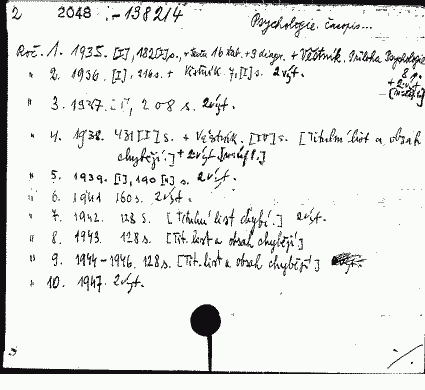 2 2048 .-138214
Psychologie. časopis...
Roč. 1. 1935. [I], 182[I] s., + 16 tab. + 3 diagr. + Věstník, Příloha Psychologie
8 s. + 2 výt.
" 2. 1936. [I], 216 s. + Věstník 7, [I] s. 2 výt.
" 3. 1937. 208 s. 2 výt.
" 4. 1938. 431 [I] s. + Věstník. [IV] s. [Titulní list a obsah
chybějí.] + 2 výt.
" 5. 1939. [I], 190 [II] s. 2 výt.
" 6. 1941 160 s. 2 výt.
" 7. 1942. 128 s. [Titulní list chybí.] 2 výt.
" 8. 1943. 128 s. [Tit. list a obsah chybějí]
" 9. 1944-1946. 128 s. [Tit. list a obsah chybějí]
" 10. 1947. 2 výt.